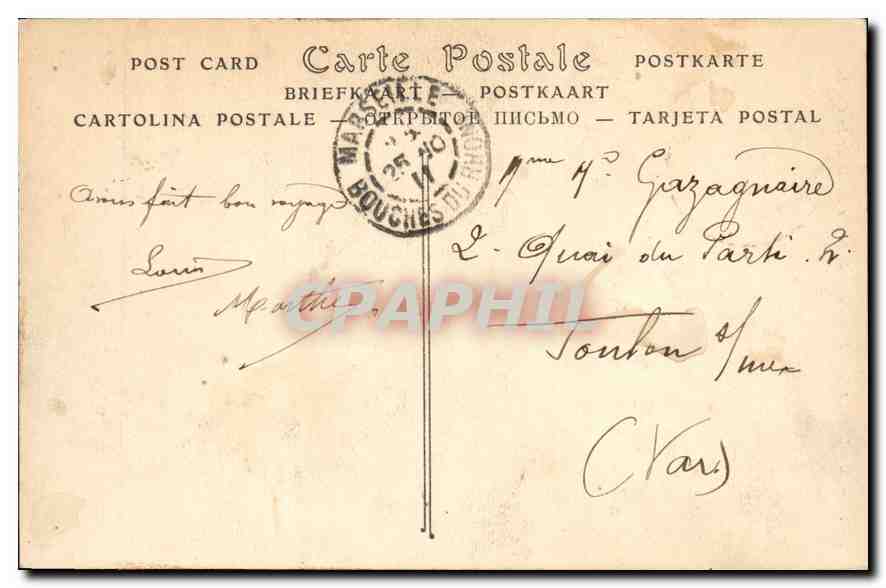 POST CARD Carte Postale POSTKARTE
BRIEFKAART — POSTKAART
CARTOLINA POSTALE — ОТКРЫТОЕ ПИСЬМО — TARJETA POSTAL
MARSEILLE
25 NO
11
BOUCHES DU RHONE
Avons fait bon voyage
Louis
Marthe
Mme Gazagnaire
2 Quai du
Toulon s/mer
(Var)
CPAPHIL